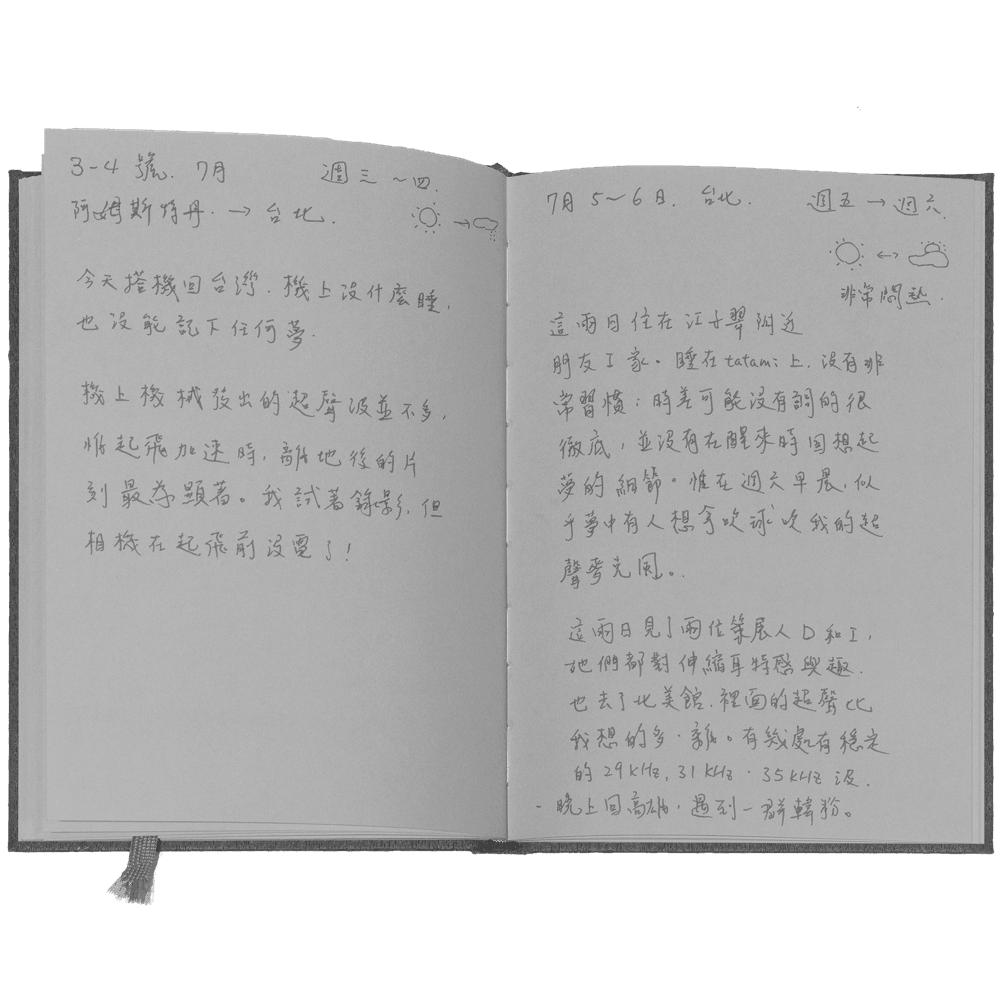 3-4 號. 7月 週三~四.
阿姆斯特丹. → 台北.
今天搭機回台灣. 機上沒什麼睡,
也沒能記下任何夢.
機上機械發出的超聲波並不多,
惟起飛加速時, 離地後的片
刻最為顯著。我試著錄影, 但
相機在起飛前沒電了!
7月 5~6日. 台北. 週五 → 週六
非常悶熱.
這兩日住在江子翠附近
朋友J家。睡在tatami上, 沒有非
常習慣; 時差可能沒有調的很
徹底, 並沒有在醒來時回想起
夢的細節。惟在週六早晨, 似
乎夢中有人想拿吹球吹我的超
聲麥克風。
這兩日見了兩位策展人 D 和 I,
她們都對伸縮耳特感興趣.
也去了北美館. 裡面的超聲比
我想的多.雜。有幾處有穩定
的 29 kHz, 31 kHz. 35 kHz 波.
- 晚上回高雄, 遇到一群韓粉。